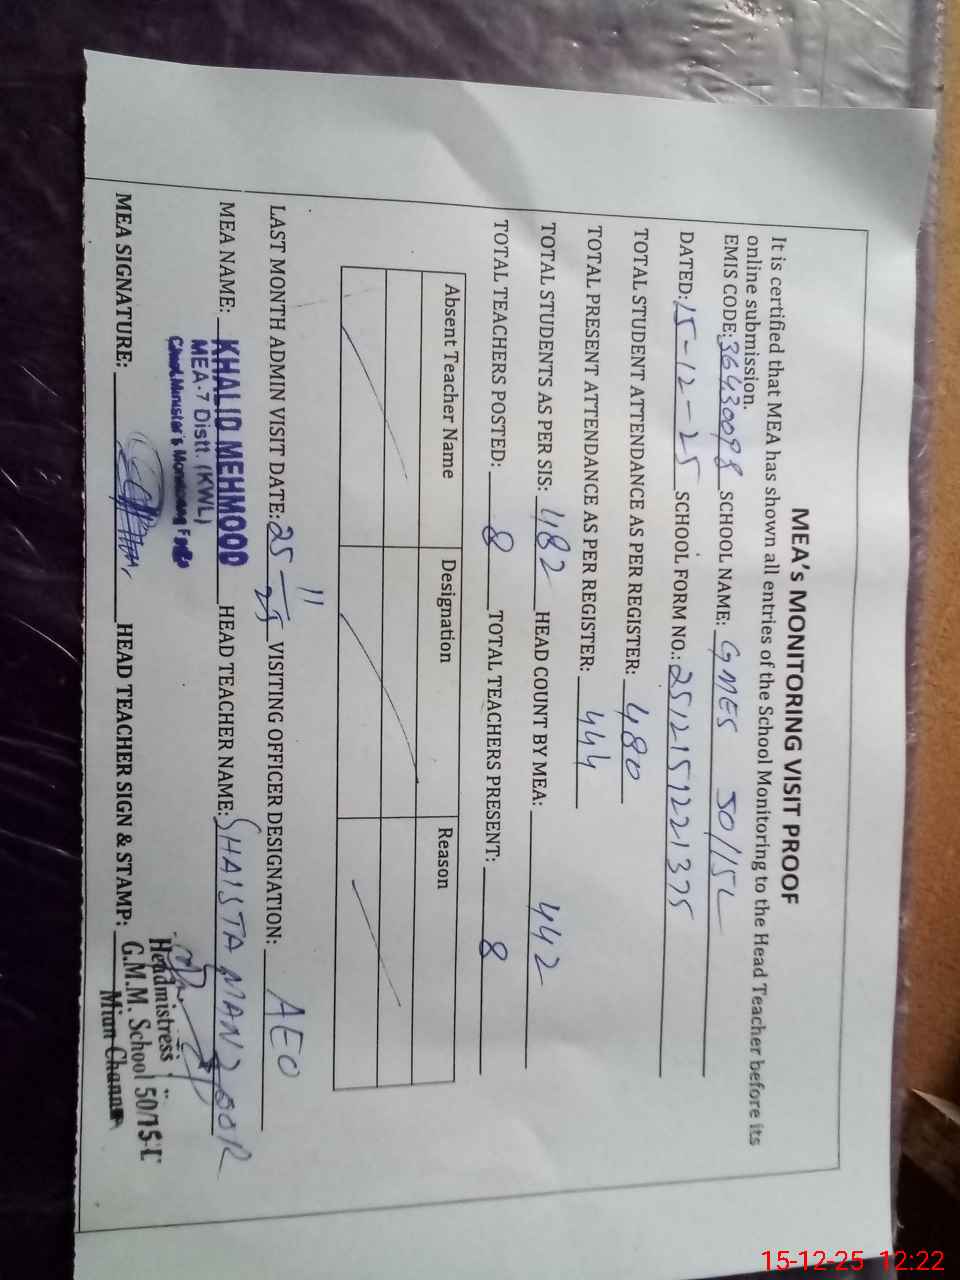 MEA's MONITORING VISIT PROOF
It is certified that MEA has shown all entries of the School Monitoring to the Head Teacher before its
online submission.
EMIS CODE: 36430098 SCHOOL NAME: GMES 50/15L
DATED: 15-12-25 SCHOOL FORM NO.: 2512151221375
TOTAL STUDENT ATTENDANCE AS PER REGISTER: 480
TOTAL PRESENT ATTENDANCE AS PER REGISTER: 444
TOTAL STUDENTS AS PER SIS: 482 HEAD COUNT BY MEA: 442
TOTAL TEACHERS POSTED: 8 TOTAL TEACHERS PRESENT: 8
Absent Teacher Name Designation Reason
LAST MONTH ADMIN VISIT DATE: 25-11-25 VISITING OFFICER DESIGNATION: AEO
MEA NAME: KHALID MEHMOOD HEAD TEACHER NAME: SHAISTA MANZOOR
MEA-7 Distt. (KWL)
Chief Minister's Monitoring Force
MEA SIGNATURE: HEAD TEACHER SIGN & STAMP:
Headmistress
G.M.M. School 50/15-L
Mian Channu
15-12-25 12:22